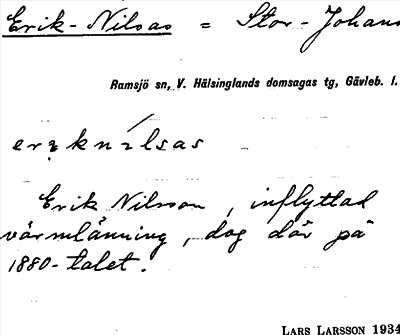 Erik-Nilsas = Stor-Johans
Ramsjö sn, V. Hälsinglands domsagas tg, Gävleb. l.
erıknílsas
Erik Nilsson, inflyttad
värmlänning, dog där på
1880-talet.
LARS LARSSON 1934